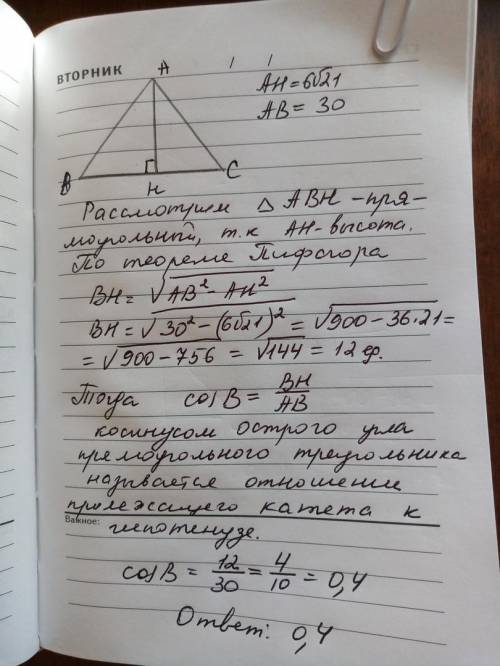 ВТОРНИК
A
AH = 6√21
AB = 30
B
H
C
Рассмотрим △ ABH - пря-
моугольный, т.к AH - высота.
По теореме Пифагора
BH = √AB² - AH²
BH = √30² - (6√21)² = √900 - 36·21 =
= √900 - 756 = √144 = 12 ед.
Тогда cos B = BH/AB
косинусом острого угла
прямоугольного треугольника
называется отношение
прилежащего катета к
Важное:
гипотенузе.
cos B = 12/30 = 4/10 = 0,4
Ответ: 0,4